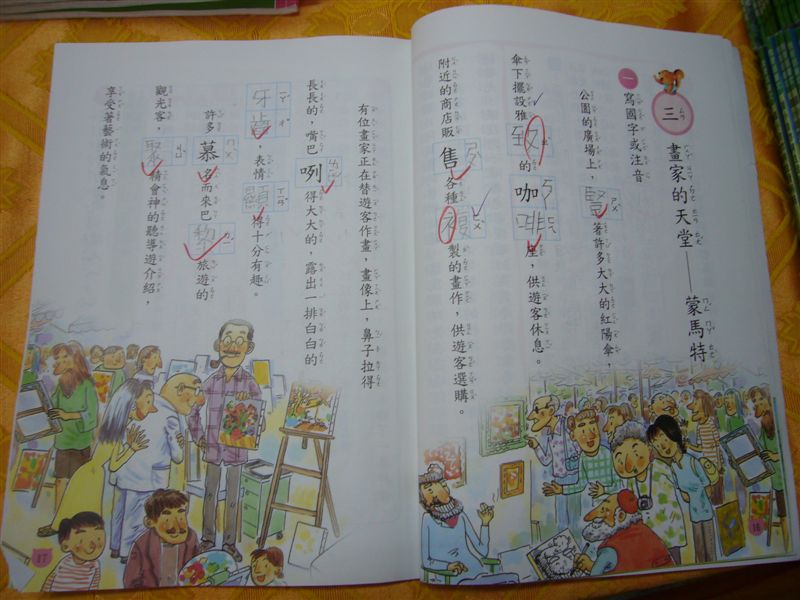 三 畫家的天堂——蒙馬特
一 寫國字或注音
公園的廣場上，豎著許多大大的紅陽傘，
傘下擺設雅致的咖啡座，供遊客休息。
附近的商店販售各種複製的畫作，供遊客選購。
16
有位畫家正在替遊客作畫，畫像上，鼻子拉得
長長的，嘴巴咧得大大的，露出一排白白的
牙齒，表情顯得十分有趣。
許多慕名而來巴黎旅遊的
觀光客，聚精會神的聽導遊介紹，
享受著藝術的氣息。
17